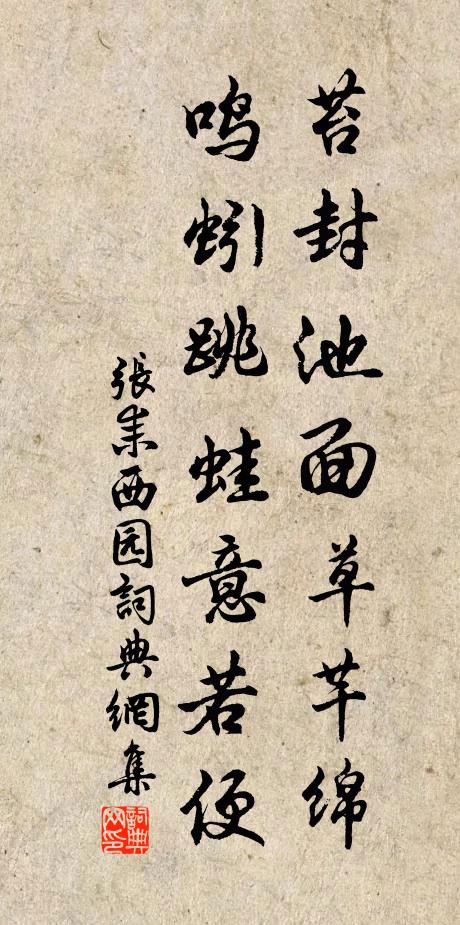 苔封池面草芊绵
鸣蚓跳蛙意若便
張耒西园詞典網集
詞典网印